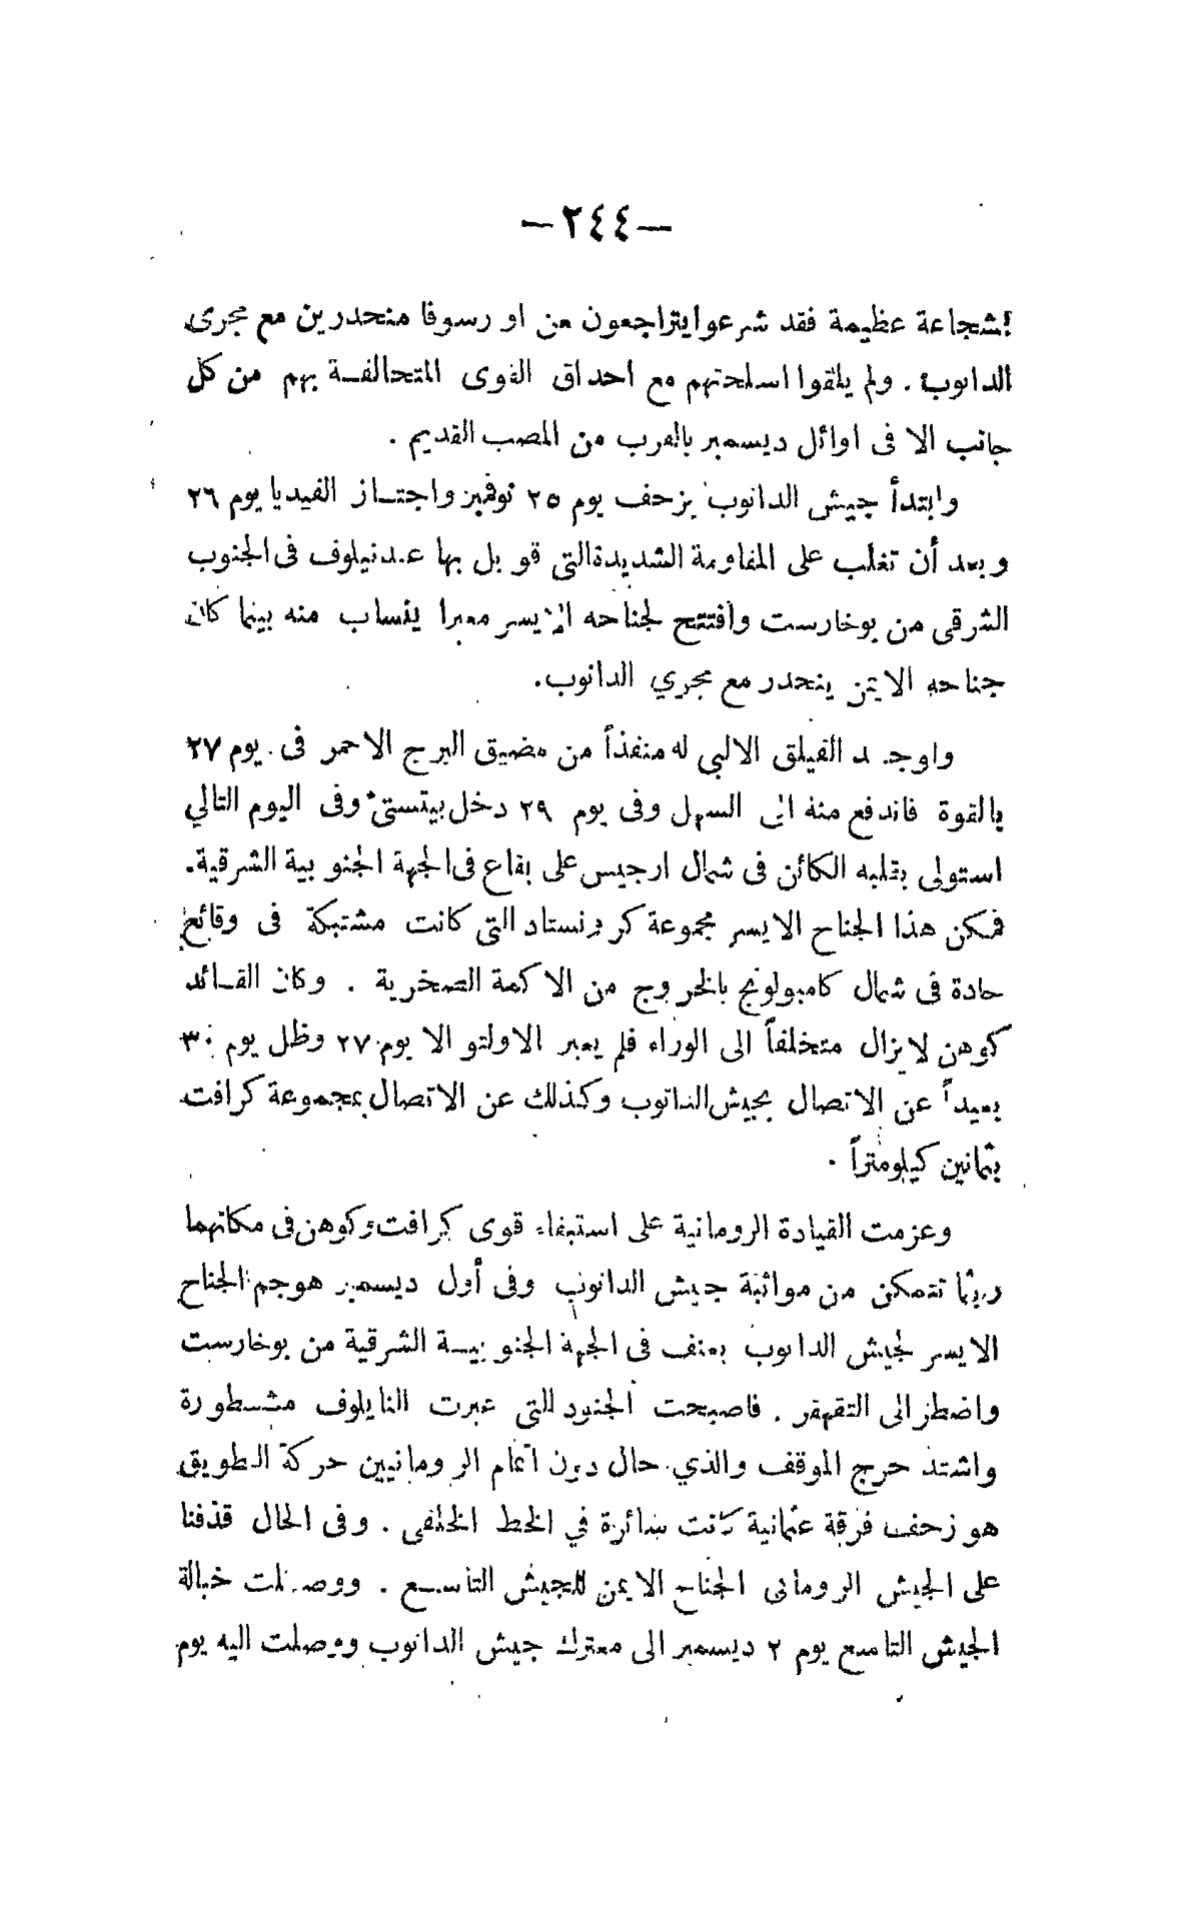 — ٢٤٤ —
بشجاعة عظيمة فقد شرعوا يتراجعون من اورسوفا منحدرين مع مجرى
الدانوب . ولم يلقوا اسلحتهم مع احداق القوى المتحالفة بهم من كل
جانب الا فى اوائل ديسمبر بالقرب من المصب القديم .
وابتدأ جيش الدانوب يزحف يوم ٢٥ نوفمبر واجتاز الفيديا يوم ٢٦
وبعد أن تغلب على المقاومة الشديدة التى قوبل بها عند نيلوف فى الجنوب
الشرقى من بوخارست وافتتح لجناحه الايسر معبرا ينساب منه بينما كان
جناحه الايمن ينحدر مع مجري الدانوب.
واوجد الفيلق الالبى له منفذاً من مضيق البرج الاحمر فى يوم ٢٧
بالقوة فاندفع منه الى السهل وفى يوم ٢٩ دخل بيتستى وفى اليوم التالي
استولى بقلبه الكائن فى شمال ارجيس على بقاع فى الجهة الجنوبية الشرقية.
فمكن هذا الجناح الايسر مجموعة كرونستاد التى كانت مشتبكة فى وقائع
حادة فى شمال كامبولونج بالخروج من الاكمة الصخرية . وكان القائد
كوهن لايزال متخلفاً الى الوراء فلم يعبر الاولتو الا يوم ٢٧ وظل يوم ٣٠
بعيداً عن الاتصال بجيش الدانوب وكذلك عن الاتصال بمجموعة كرافت
بثمانين كيلومتراً .
وعزمت القيادة الرومانية على استبقاء قوى كرافت وكوهن فى مكانهما
ريثما تتمكن من مواثبة جيش الدانوب وفى أول ديسمبر هوجم الجناح
الايسر لجيش الدانوب بعنف فى الجهة الجنوبية الشرقية من بوخارست
واضطر الى التقهقر . فاصبحت الجنود التى عبرت النايلوف مشطورة
واشتد حرج الموقف والذي حال دون اتمام الرومانيين حركة التطويق
هو زحف فرقة عثمانية كانت سائرة في الخط الخلفى . وفى الحال قذفنا
على الجيش الرومانى الجناح الايمن للجيش التاسع . ووصلت خيالة
الجيش التاسع يوم ٢ ديسمبر الى معترك جيش الدانوب ووصلت اليه يوم